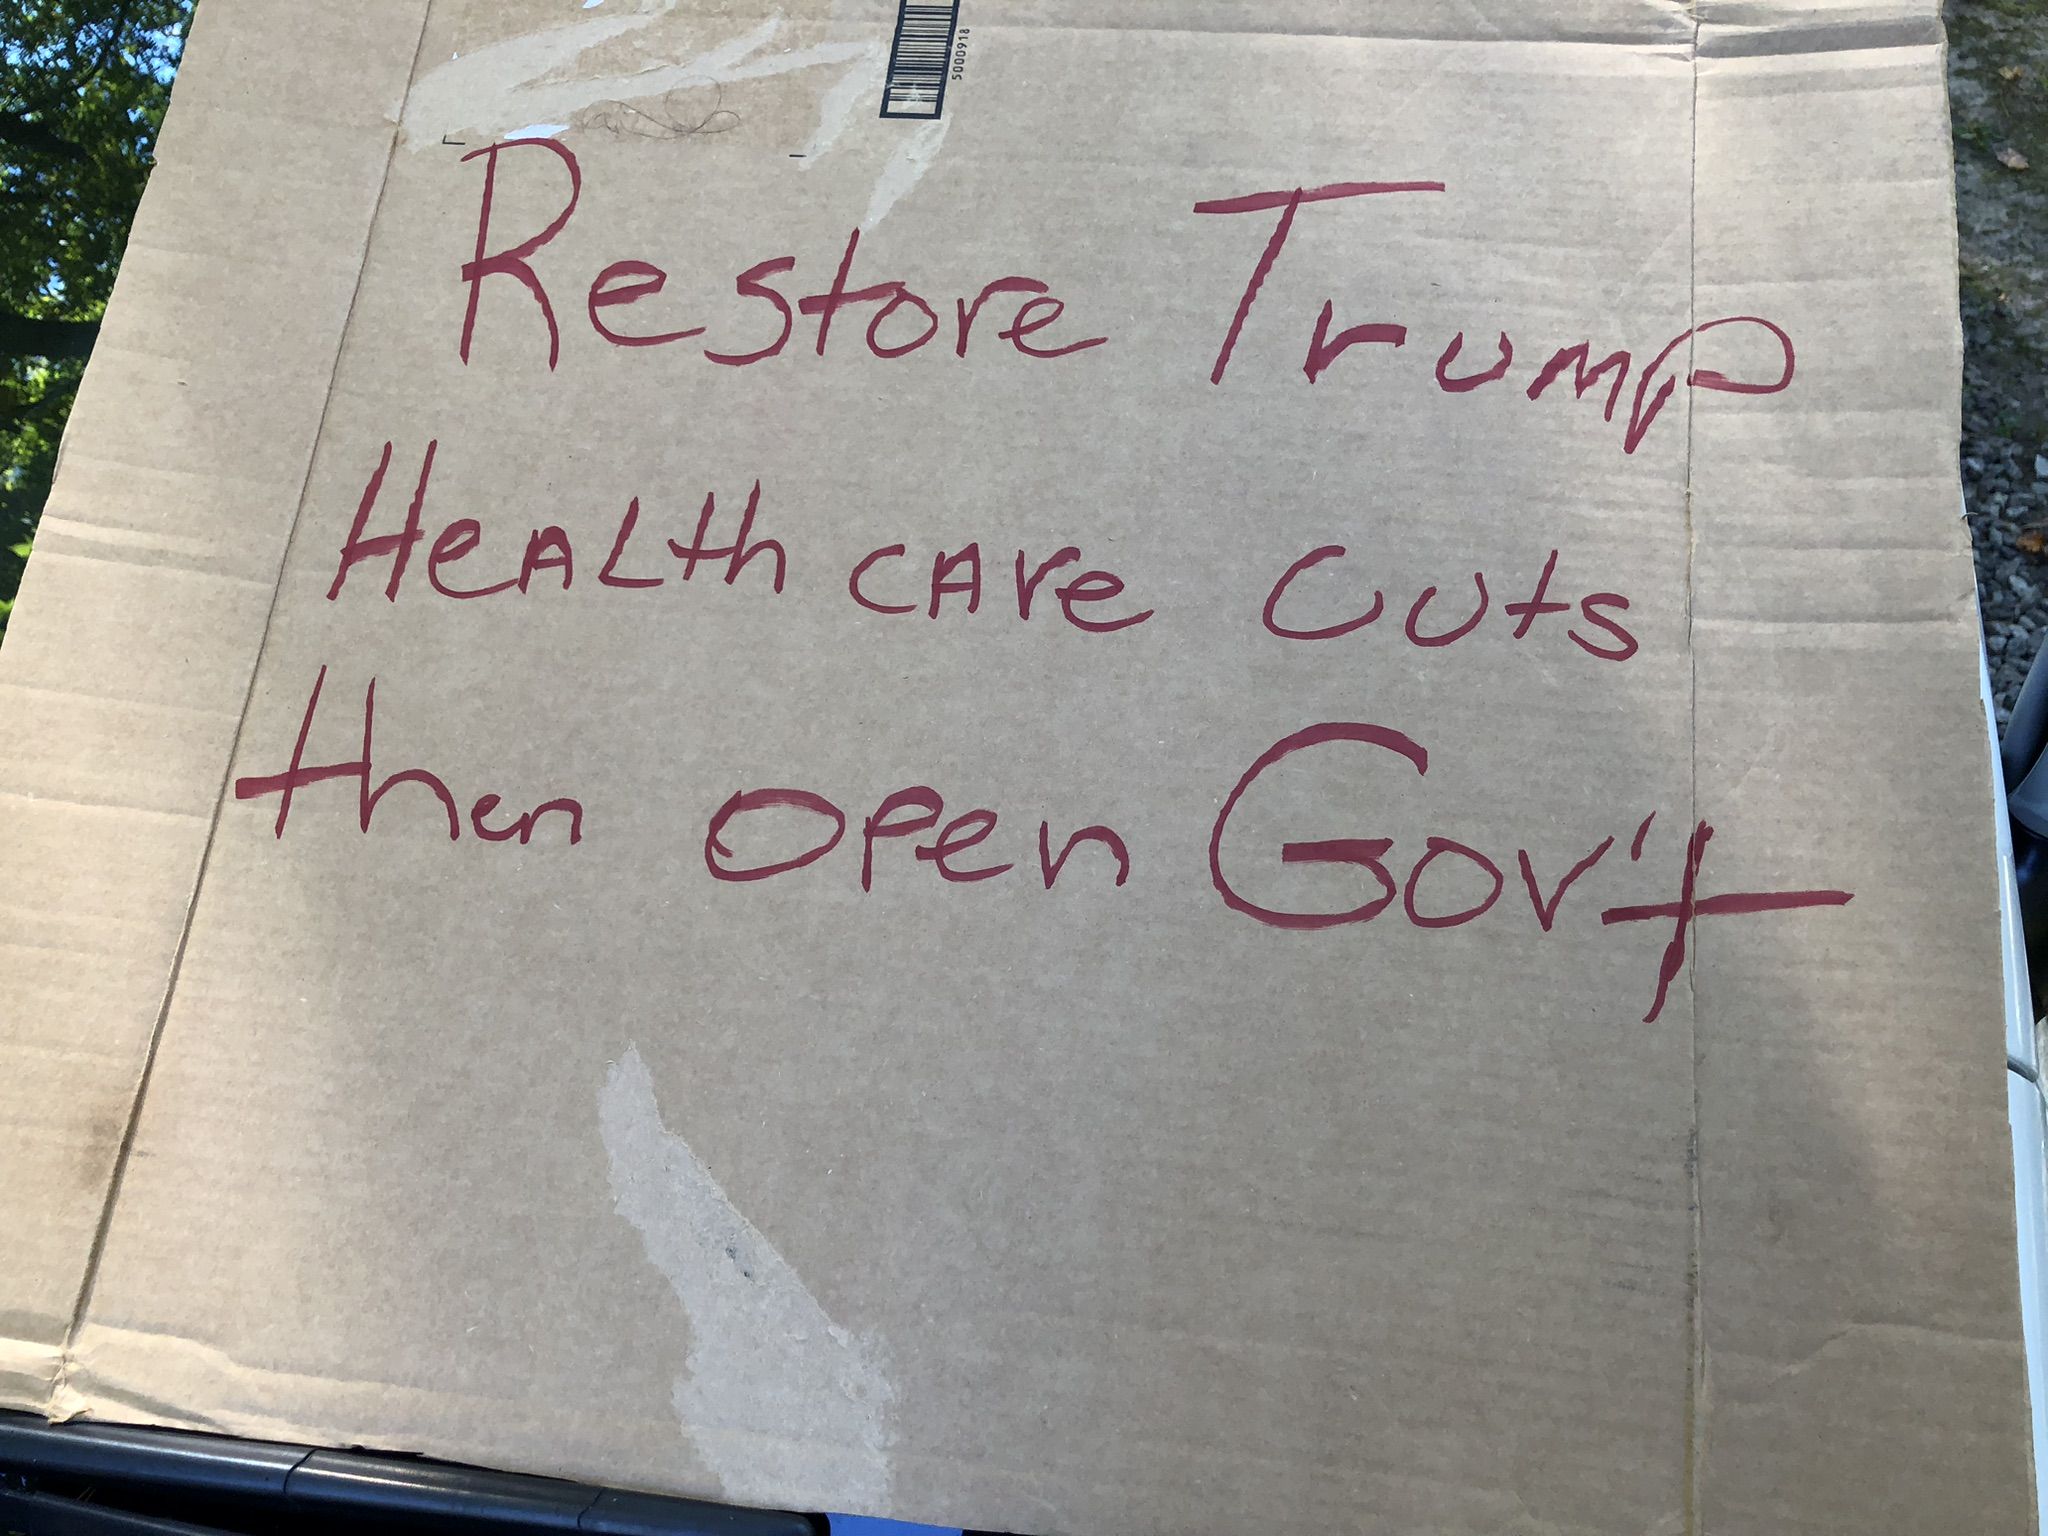 5000918
Restore Trump
HeALth cAre cuts
then open Gov't